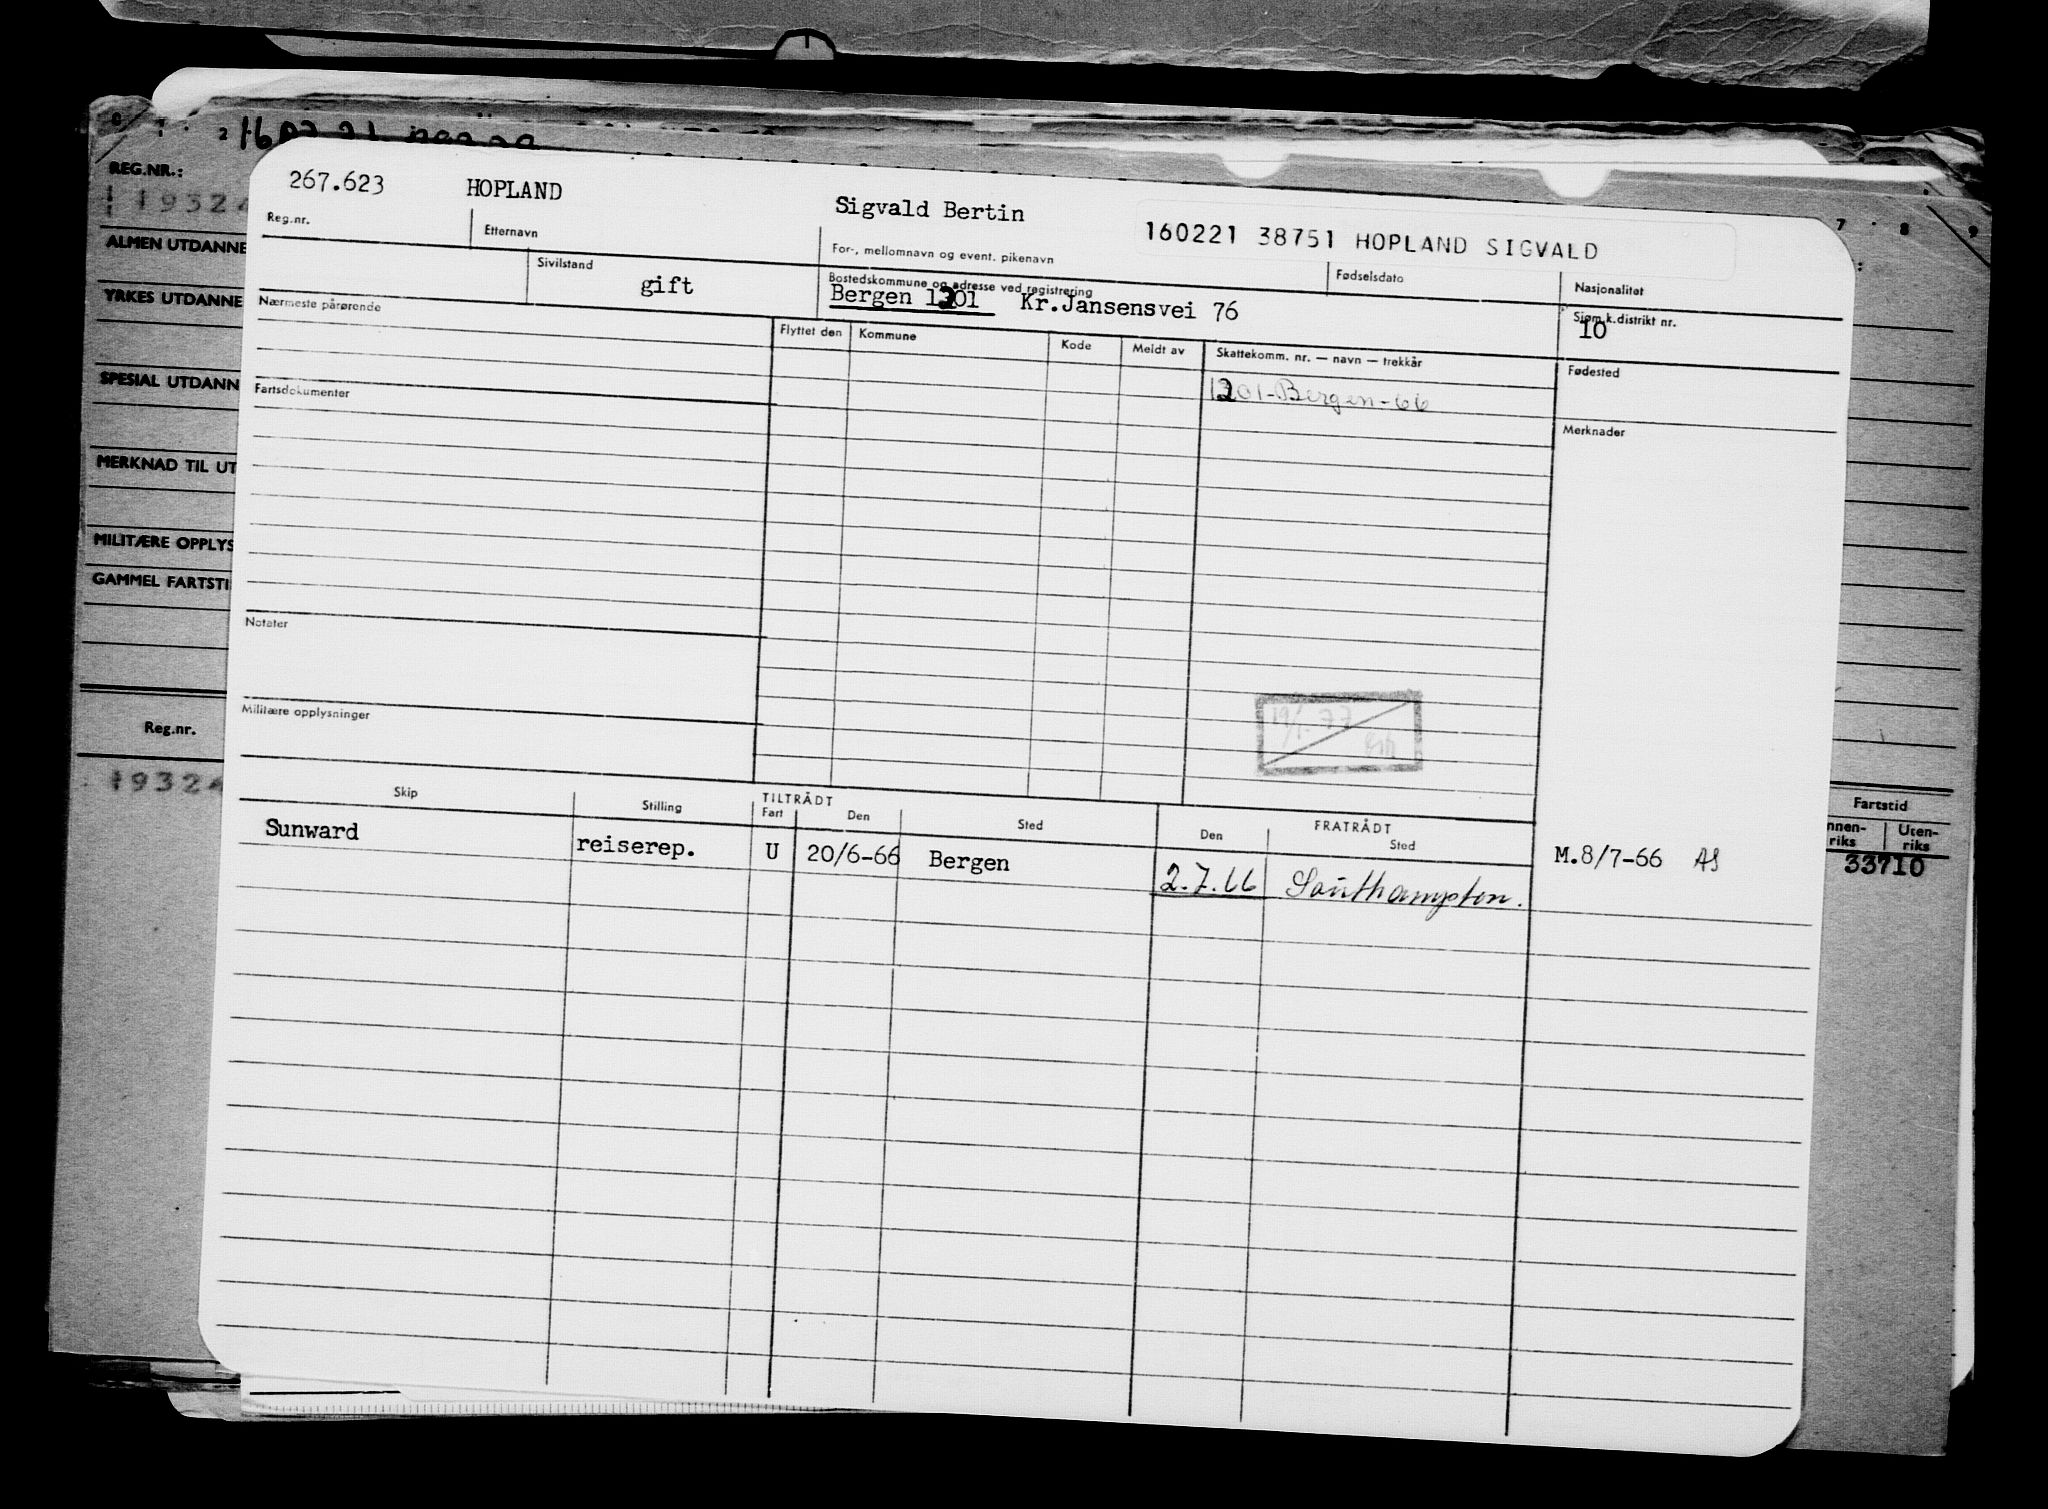 REG.NR.:
19324
ALMEN UTDANNE
YRKES UTDANNE
SPESIAL UTDANN
MERKNAD TIL UT
MILITÆRE OPPLYS
GAMMEL FARTSTI
Reg.nr.
19324
267.623 HOPLAND Sigvald Bertin
160221 38751 HOPLAND SIGVALD
Reg.nr. Etternavn For-, mellomnavn og event. pikenavn Fødselsdato Nasjonalitet
Sivilstand gift
Bostedskommune og adresse ved registrering
Bergen 1301 Kr.Jansensvei 76
Sjøm.k.distrikt nr.
10
Nærmeste pårørende
Flyttet den Kommune Kode Meldt av Skattekomm. nr. — navn — trekkår Fødested
1301-Bergen-66
Fartsdokumenter
Merknader
Notater
Militære opplysninger
19/1-77
Skip Stilling TILTRÅDT Fart Den Sted FRATRÅDT Den Sted
Sunward reiserep. U 20/6-66 Bergen 2.7.66 Southampton. M.8/7-66 AS
7 8 9
Fartstid
nnen-riks Uten-riks
33710